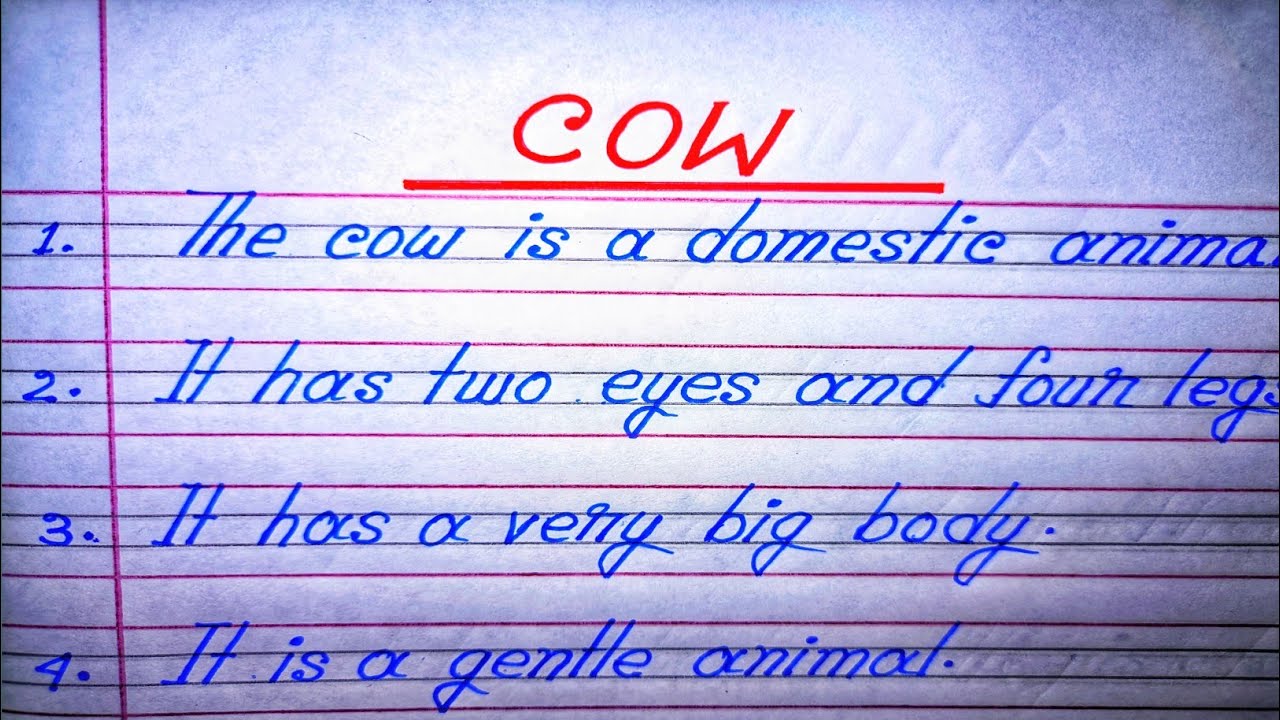 COW
1. The cow is a domestic animal
2. It has two eyes and four legs
3. It has a very big body.
4. It is a gentle animal.